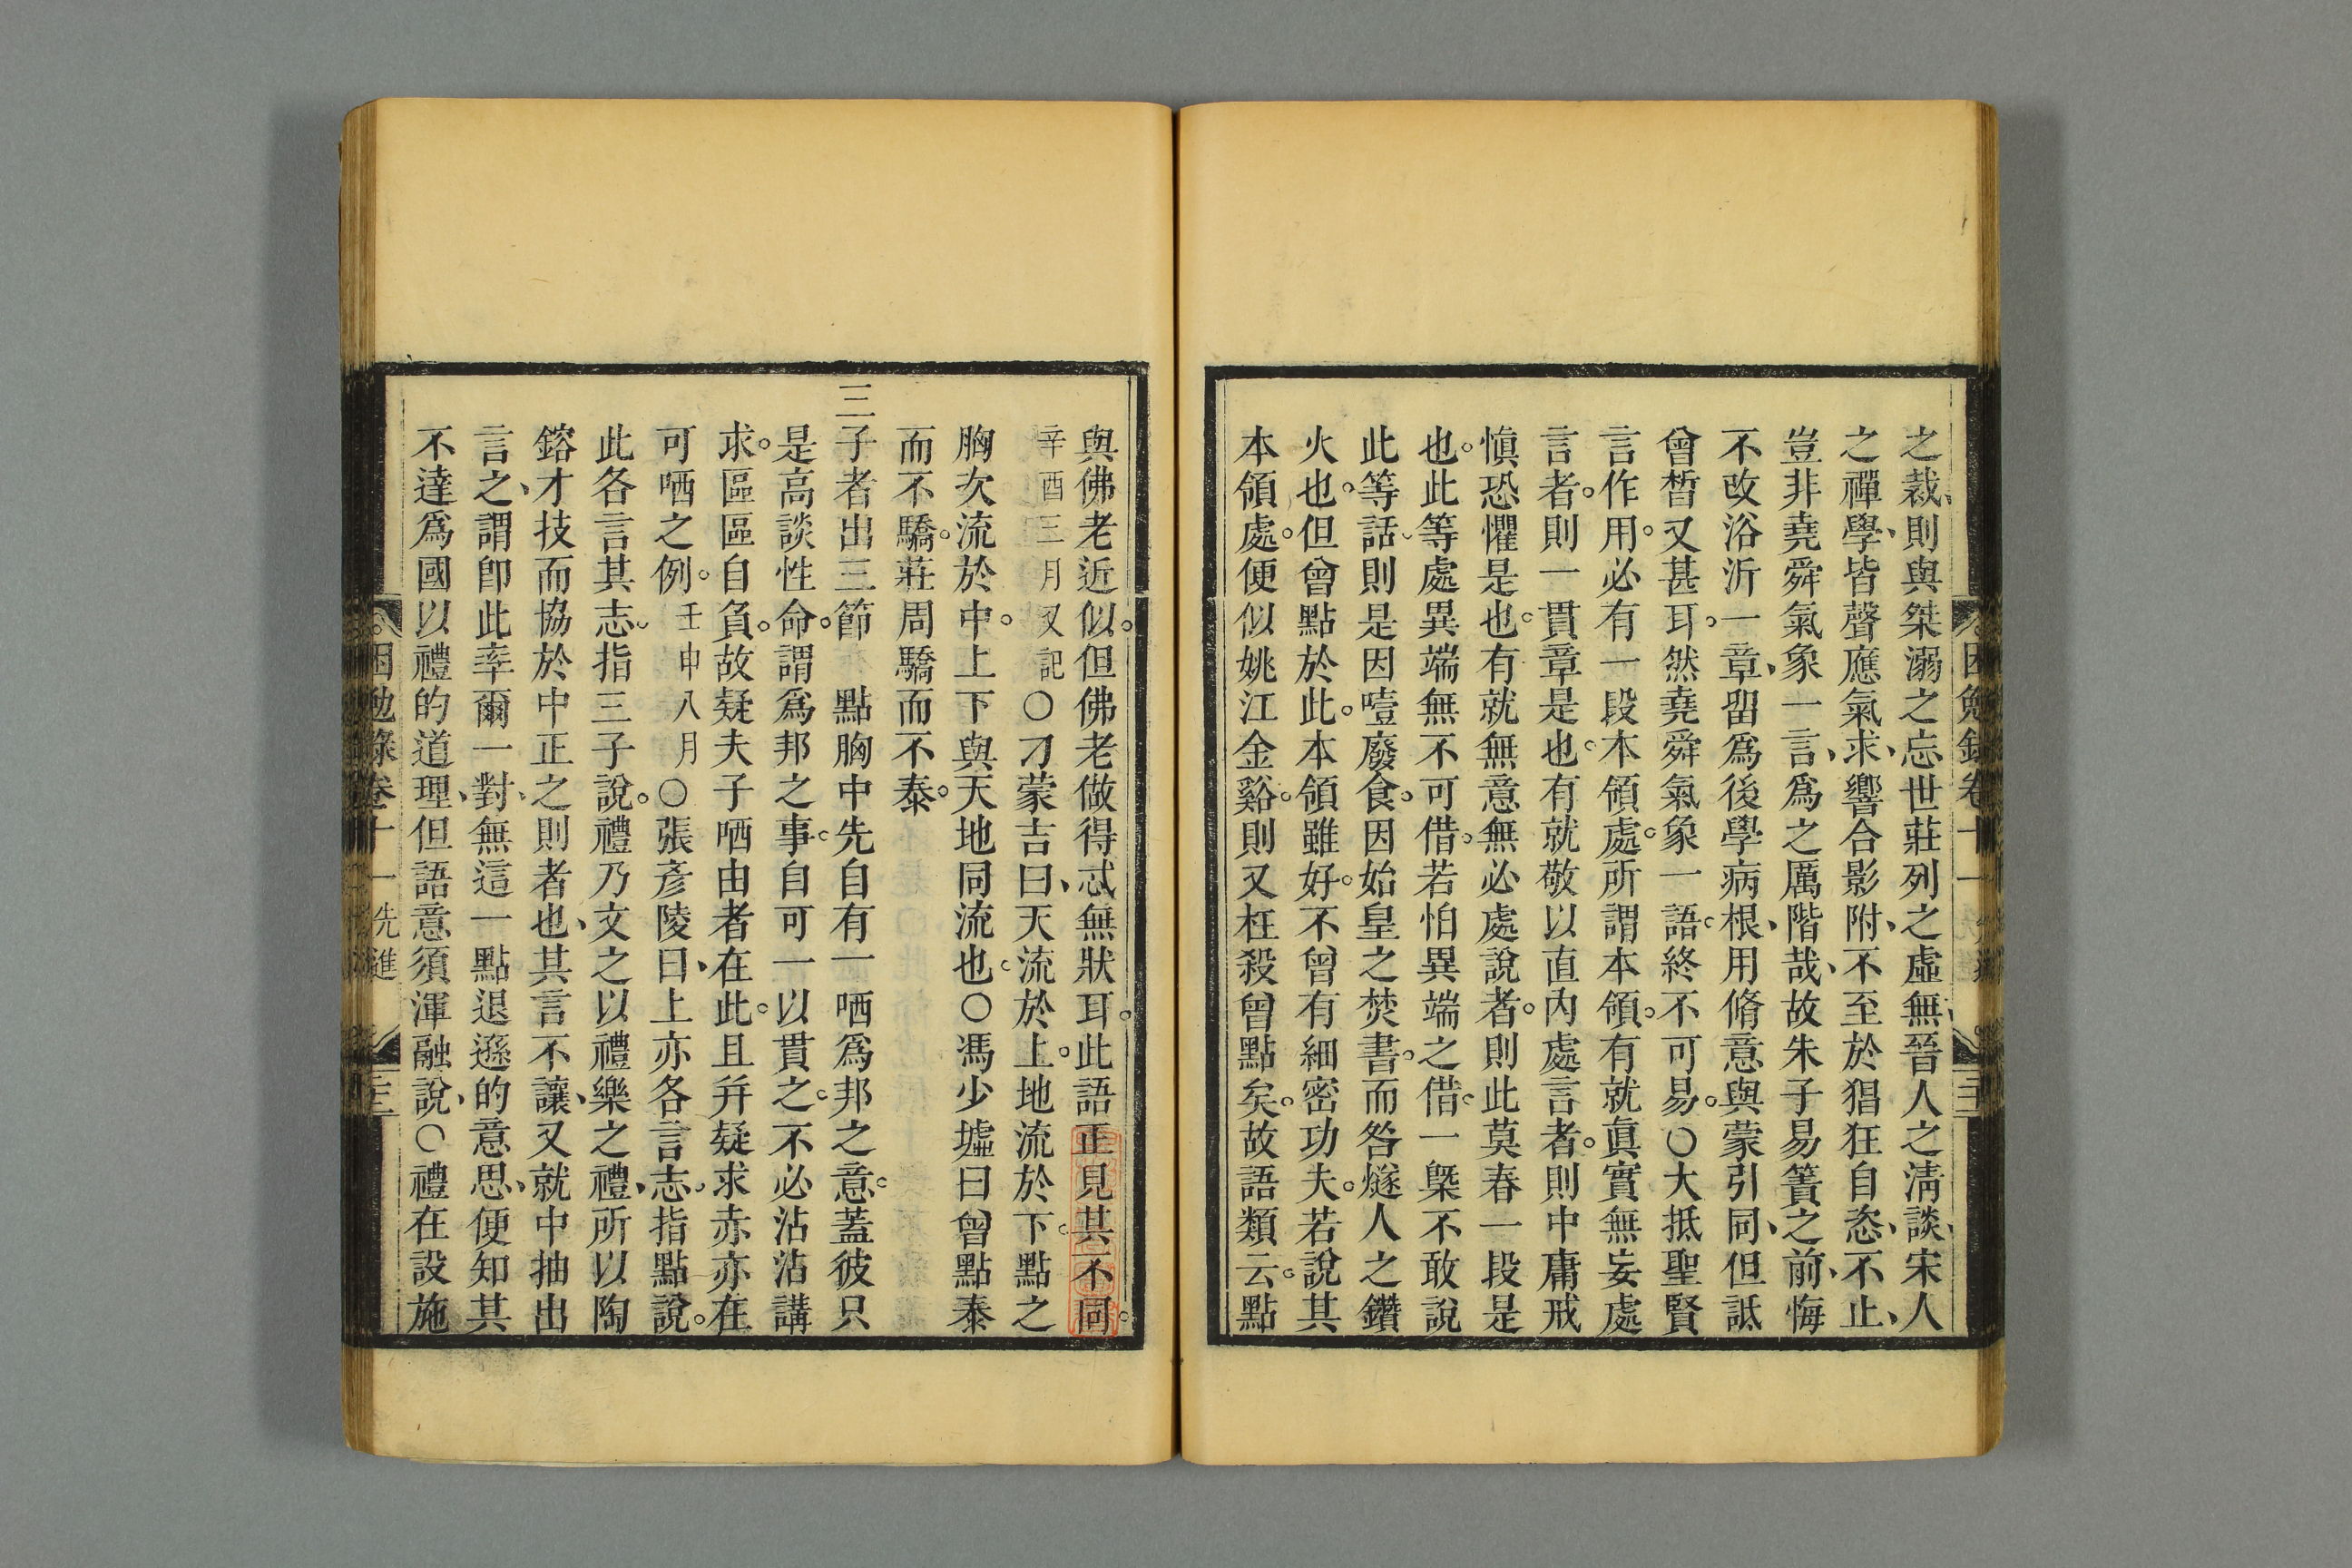 之裁則與桀溺之忘世莊列之虛無晉人之淸談宋人
之禪學皆聲應氣求響合影附不至於猖狂自恣不止
豈非堯舜氣象一言爲之厲階哉故朱子易簀之前悔
不改浴沂一章畱爲後學病根用脩意與蒙引同但詆
曾晳又甚耳然堯舜氣象一語終不可易○大抵聖賢
言作用必有一段本領處所謂本領有就眞實無妄處
言者則一貫章是也有就敬以直內處言者則中庸戒
愼恐懼是也有就無意無必處說者則此莫春一段是
也此等處異端無不可借若怕異端之借一槩不敢說
此等話則是因噎廢食因始皇之焚書而咎燧人之鑽
火也但曾點於此本領雖好不曾有細密功夫若說其
本領處便似姚江金谿則又枉殺曾點矣故語類云點
與佛老近似但佛老做得忒無狀耳此語正見其不同
辛酉三月又記○刁蒙吉曰天流於上地流於下點之
胸次流於中上下與天地同流也○馮少墟曰曾點泰
而不驕莊周驕而不泰
三子者出三節 點胸中先自有一哂爲邦之意蓋彼只
是高談性命謂爲邦之事自可一以貫之不必沾沾講
求區區自負故疑夫子哂由者在此且幷疑求赤亦在
可哂之例壬申八月○張彥陵曰上亦各言志指點說
此各言其志指三子說禮乃文之以禮樂之禮所以陶
鎔才技而協於中正之則者也其言不讓又就中抽出
言之謂卽此率爾一對無這一點退遜的意思便知其
不達爲國以禮的道理但語意須渾融說○禮在設施
困勉錄卷十一 先進